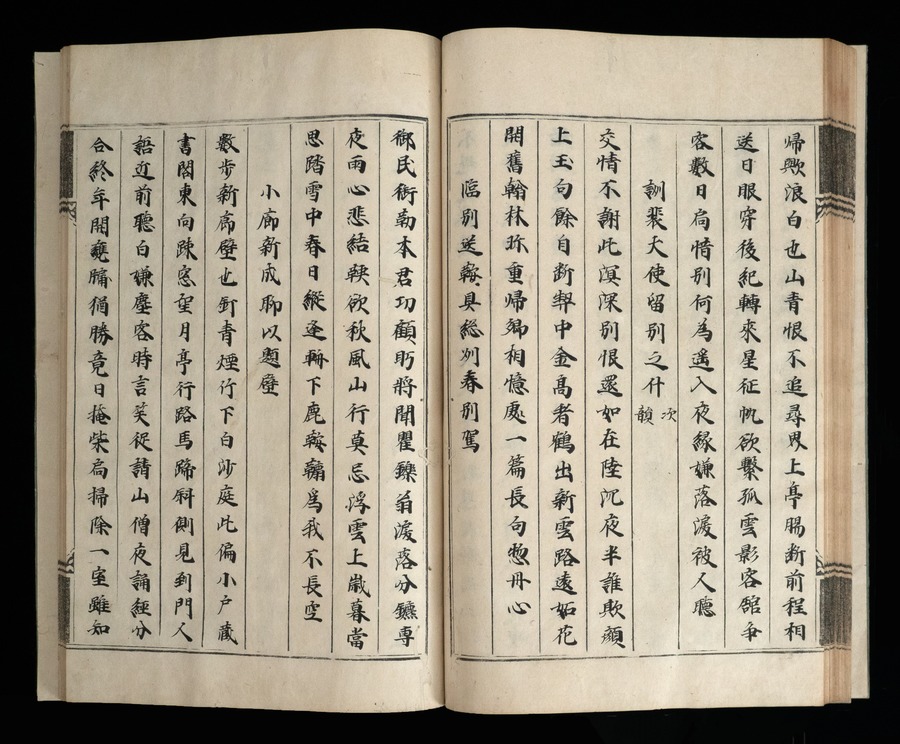 歸歟浪白也山青恨不追尋界上亭腸断前程相
送日眼穿後紀轉來星征帆欲繫孤雲影客舘争
客數日扃惜別何為遥入夜縁嫌落涙被人聴
訓裴大使留別之什 次韻
交情不謝此溟深別恨還如在陸沉夜半誰欺顔
上玉句餘自断契中金高者鶴出新雲路遠妬花
開舊翰林珎重歸郷相憶處一篇長句惣丹心
臨別送鞍具総州春別駕
御民術勒本君功顧眄將聞矍鑠翁涙落分鑣専
夜雨心悲結鞅欲秋風山行莫忌浮雲上歳暮當
思踏雪中春日縦逢下鹿鞍鞴為我不長空
小廊新成聊以題壁
數步新廊壁也釘青煙竹下白沙庭此偏小戸蔵
書閣東向疎窓望月亭行路馬蹄斜側見到門人
語近前聽白嫌塵客時言笑從請山僧夜誦經分
合終年開甕牖猶勝竟日掩柴扃掃除一室雖知